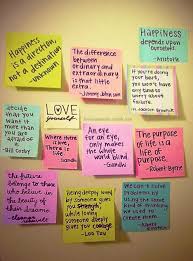 Happiness
is a direction
not a destination
- unknown
The difference
between ordinary
and extraordinary
is that little
extra.
- Jimmy Johnson
Happiness
depends upon
ourselves.
- Aristotle
If you're doing
your best,
you won't
have time to
worry about
failure.
decide
that you
want it
more than
you are
afraid of
it.
- Bill Cosby
LOVE
yourself
Where there
is love,
there is
life.
- Gandhi
An eye
for an eye,
only makes
the whole
world blind
- Gandhi
The purpose
of life is a
life of
purpose.
- Robert Byrne
the future
belongs to those
who believe in
the beauty of
their dreams
Being deeply loved by
someone gives you
strength,
while loving
someone deeply
gives you courage
- Lao Tzu
We can't
solve
problems by
using the
same kind
of thinking
we used to
create
them.